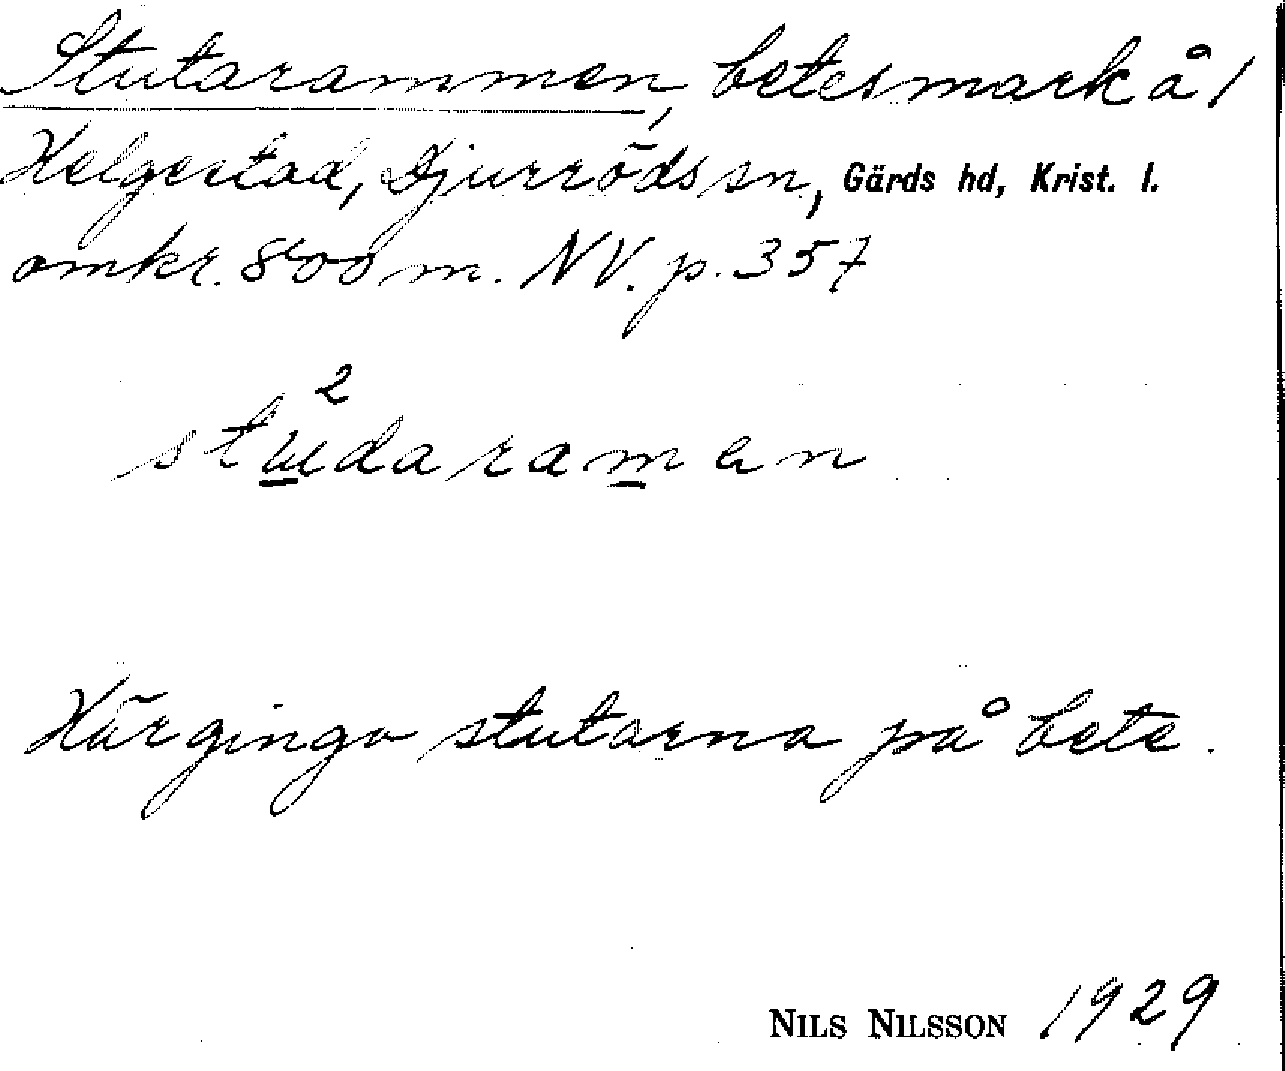 Stutarammen, betesmark å 1
Helgestad, Djurröds sn, Gärds hd, Krist. l.
omkr. 800 m. NV. p. 357
2
stu̲daram̲an
Här gingo stutarna på bete.
NILS NILSSON 1929